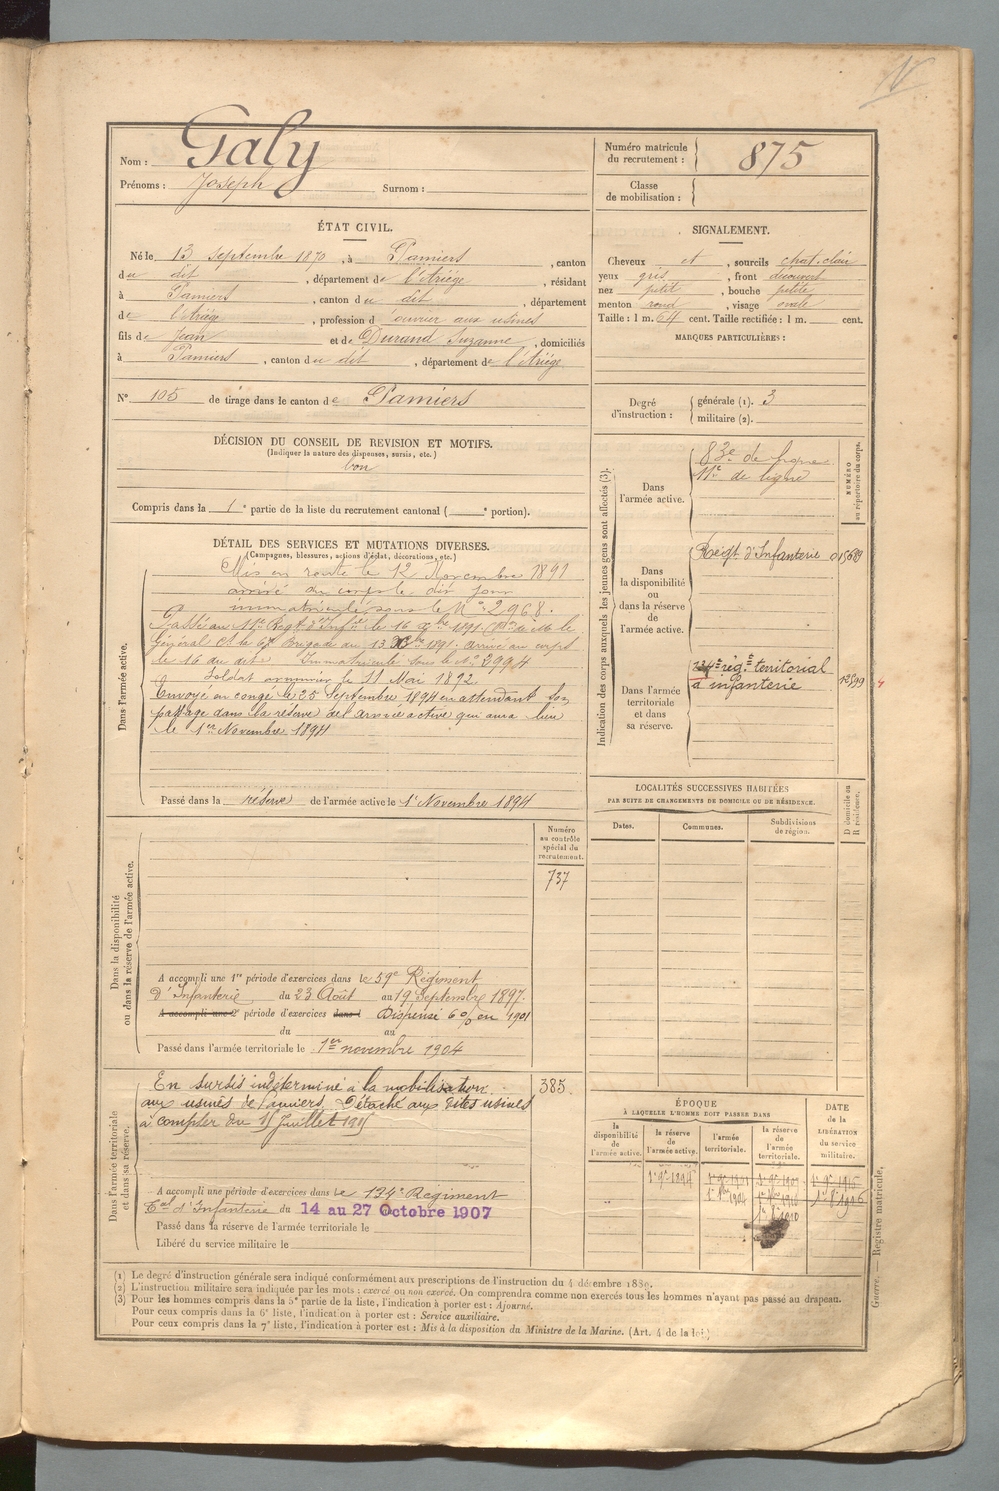 Nom : Galy
Prénoms : Joseph Surnom :
Numéro matricule du recrutement : 875
Classe de mobilisation :
ÉTAT CIVIL.
Né le 13 septembre 1870, à Pamiers, canton
du dit, département de l'Ariège, résidant
à Pamiers, canton du dit, département
de l'Ariège, profession d'ouvrier aux usines
fils de Jean et de Durand Suzanne, domiciliés
à Pamiers, canton du dit, département de l'Ariège
N° 105 de tirage dans le canton de Pamiers
DÉCISION DU CONSEIL DE REVISION ET MOTIFS.
(Indiquer la nature des dispenses, sursis, etc.)
bon
Compris dans la 1e partie de la liste du recrutement cantonal ( e portion).
SIGNALEMENT.
Cheveux et, sourcils chat. clair
yeux gris, front découvert
nez petit, bouche petite
menton rond, visage ovale
Taille : 1 m. 64 cent. Taille rectifiée : 1 m. cent.
MARQUES PARTICULIÈRES :
Degré d'instruction : générale (1). 3
militaire (2).
DÉTAIL DES SERVICES ET MUTATIONS DIVERSES.
(Campagnes, blessures, actions d'éclat, décorations, etc.)
Dans l'armée active.
Mis en route le 12 Novembre 1891
arrivé au corps le dit jour
immatriculé sous le N° 2968.
Passé au 11e Régt d'Infie le 16 Xbre 1891 le
Général Ct la 67e Brigade du 13 Xbre 1891. arrivé au corps
le 16 du dit Immatriculé sous le n° 2994
Soldat ordonnier le 11 Mai 1892
Envoyé en congé le 25 Septembre 1894 en attendant son
passage dans la réserve de l'armée active qui aura lieu
le 1er Novembre 1894
Passé dans la réserve de l'armée active le 1er Novembre 1894
Indication des corps auxquels les jeunes gens sont affectés (3).
NUMÉRO au répertoire du corps.
Dans l'armée active.
83e de ligne
11e de ligne
Dans la disponibilité ou dans la réserve de l'armée active.
Régt d'Infanterie 015689
Dans l'armée territoriale et dans sa réserve.
134e rég.t territorial
d'infanterie
LOCALITÉS SUCCESSIVES HABITÉES
PAR SUITE DE CHANGEMENTS DE DOMICILE OU DE RÉSIDENCE.
D domicile ou R résidence.
Dates. Communes. Subdivisions de région.
Dans la disponibilité ou dans la réserve de l'armée active.
Numéro au contrôle spécial du recrutement.
737
A accompli une 1re période d'exercices dans le 59e Régiment
d'Infanterie du 23 Août au 19 Septembre 1897.
A accompli une 2e période d'exercices dans l Dispensé 6% en 1901
du au
Passé dans l'armée territoriale le 1er novembre 1904
Dans l'armée territoriale et dans sa réserve.
En sursis indéterminé à la mobilisation 385
aux usines de Pamiers. Détaché aux dites usines
à compter du 15 Juillet 1915
A accompli une période d'exercices dans le 134e Régiment
Tal d'Infanterie du 14 au 27 Octobre 1907
Passé dans la réserve de l'armée territoriale le
Libéré du service militaire le
ÉPOQUE
À LAQUELLE L'HOMME DOIT PASSER DANS
DATE de la LIBÉRATION du service militaire.
la disponibilité de l'armée active.
la réserve de l'armée active.
l'armée territoriale.
la réserve de l'armée territoriale.
1er 9bre 1894
(1) Le degré d'instruction générale sera indiqué conformément aux prescriptions de l'instruction du 4 décembre 1889.
(2) L'instruction militaire sera indiquée par les mots : exercé ou non exercé. On comprendra comme non exercés tous les hommes n'ayant pas passé au drapeau.
(3) Pour les hommes compris dans la 5e partie de la liste, l'indication à porter est : Ajourné.
Pour ceux compris dans la 6e liste, l'indication à porter est : Service auxiliaire.
Pour ceux compris dans la 7e liste, l'indication à porter est : Mis à la disposition du Ministre de la Marine. (Art. 4 de la loi.)
Guerre. — Registre matricule.